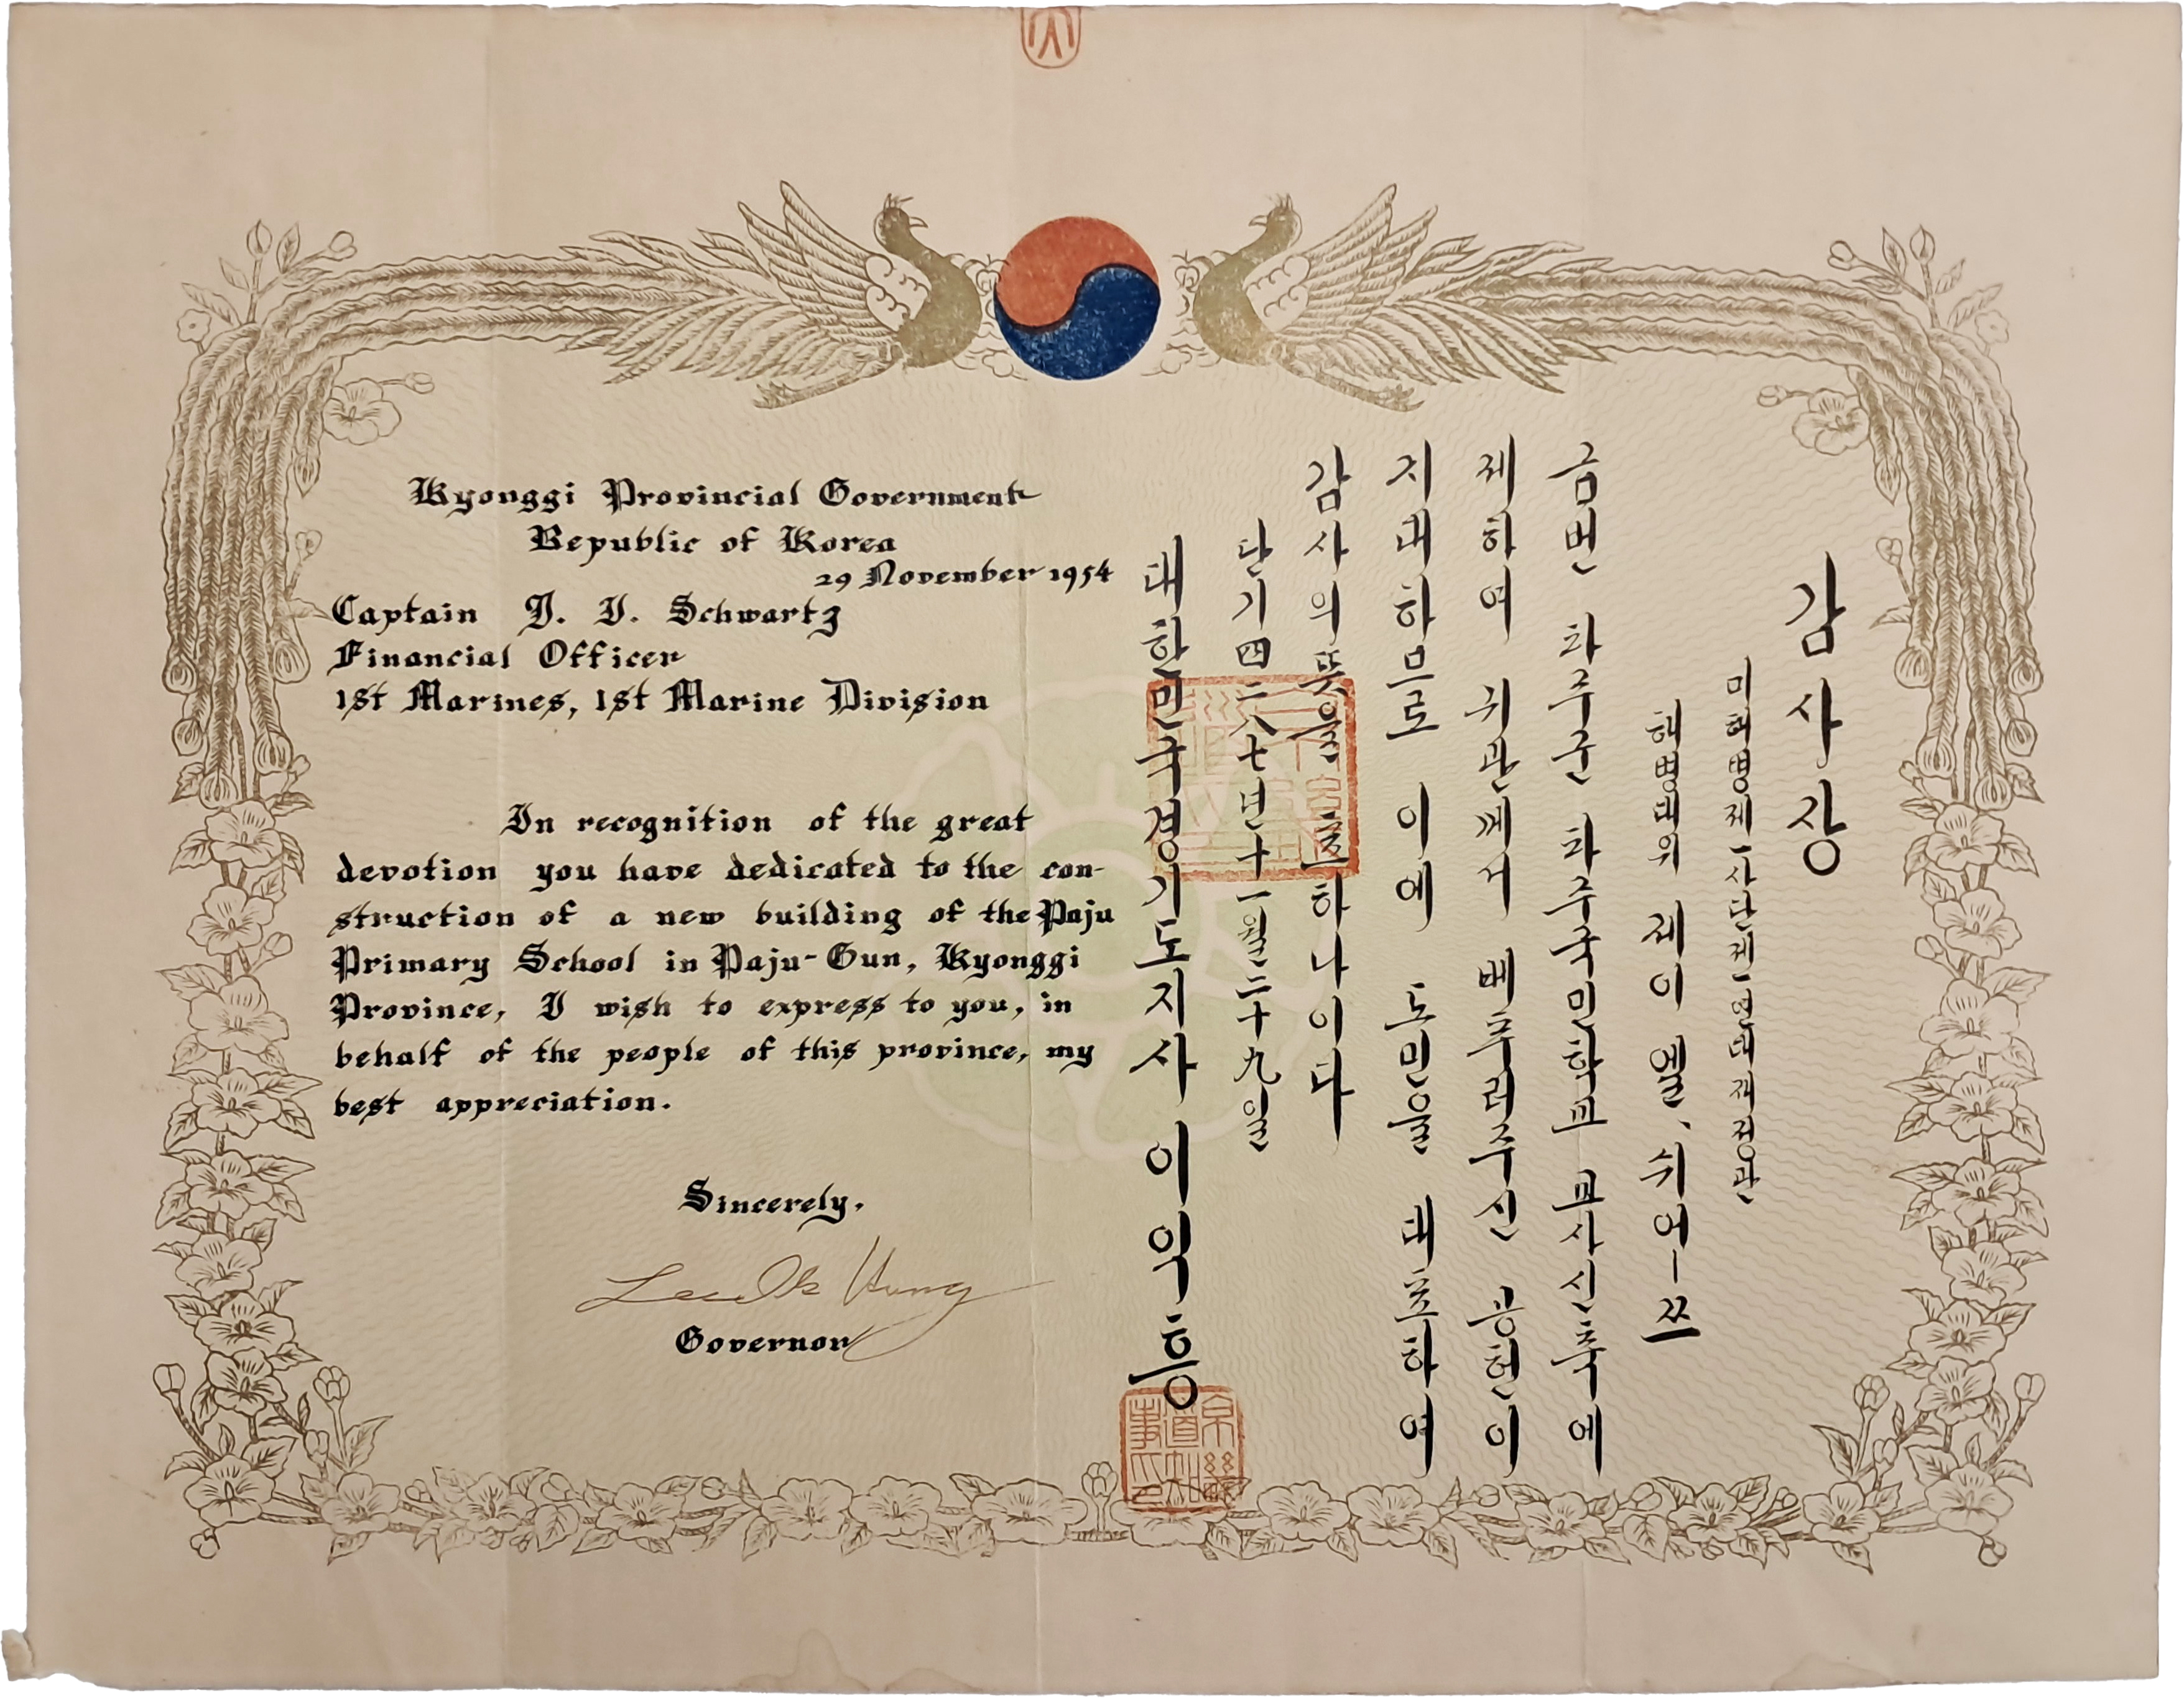 Kyonggi Provincial Government
Republic of Korea
29 November 1954
Captain J. I. Schwartz
Financial Officer
1st Marines, 1st Marine Division
In recognition of the great
devotion you have dedicated to the con-
struction of a new building of the Paju
Primary School in Paju-Gun, Kyonggi
Province, I wish to express to you, in
behalf of the people of this province, my
best appreciation.
Sincerely,
Lee Ik Hung
Governor
감사장
미해병제一사단제一연대재정관
해병대위 제이 엘、쉬어ー쯔
금번 파주군 파주국민학교 교사신축에
제하여 귀관께서 베푸러주신 공헌이
지대하므로 이에 도민을 대표하여
감사의뜻을표하나이다
단기四二八七년十一월二十九일
대한민국경기도지사 이익흥